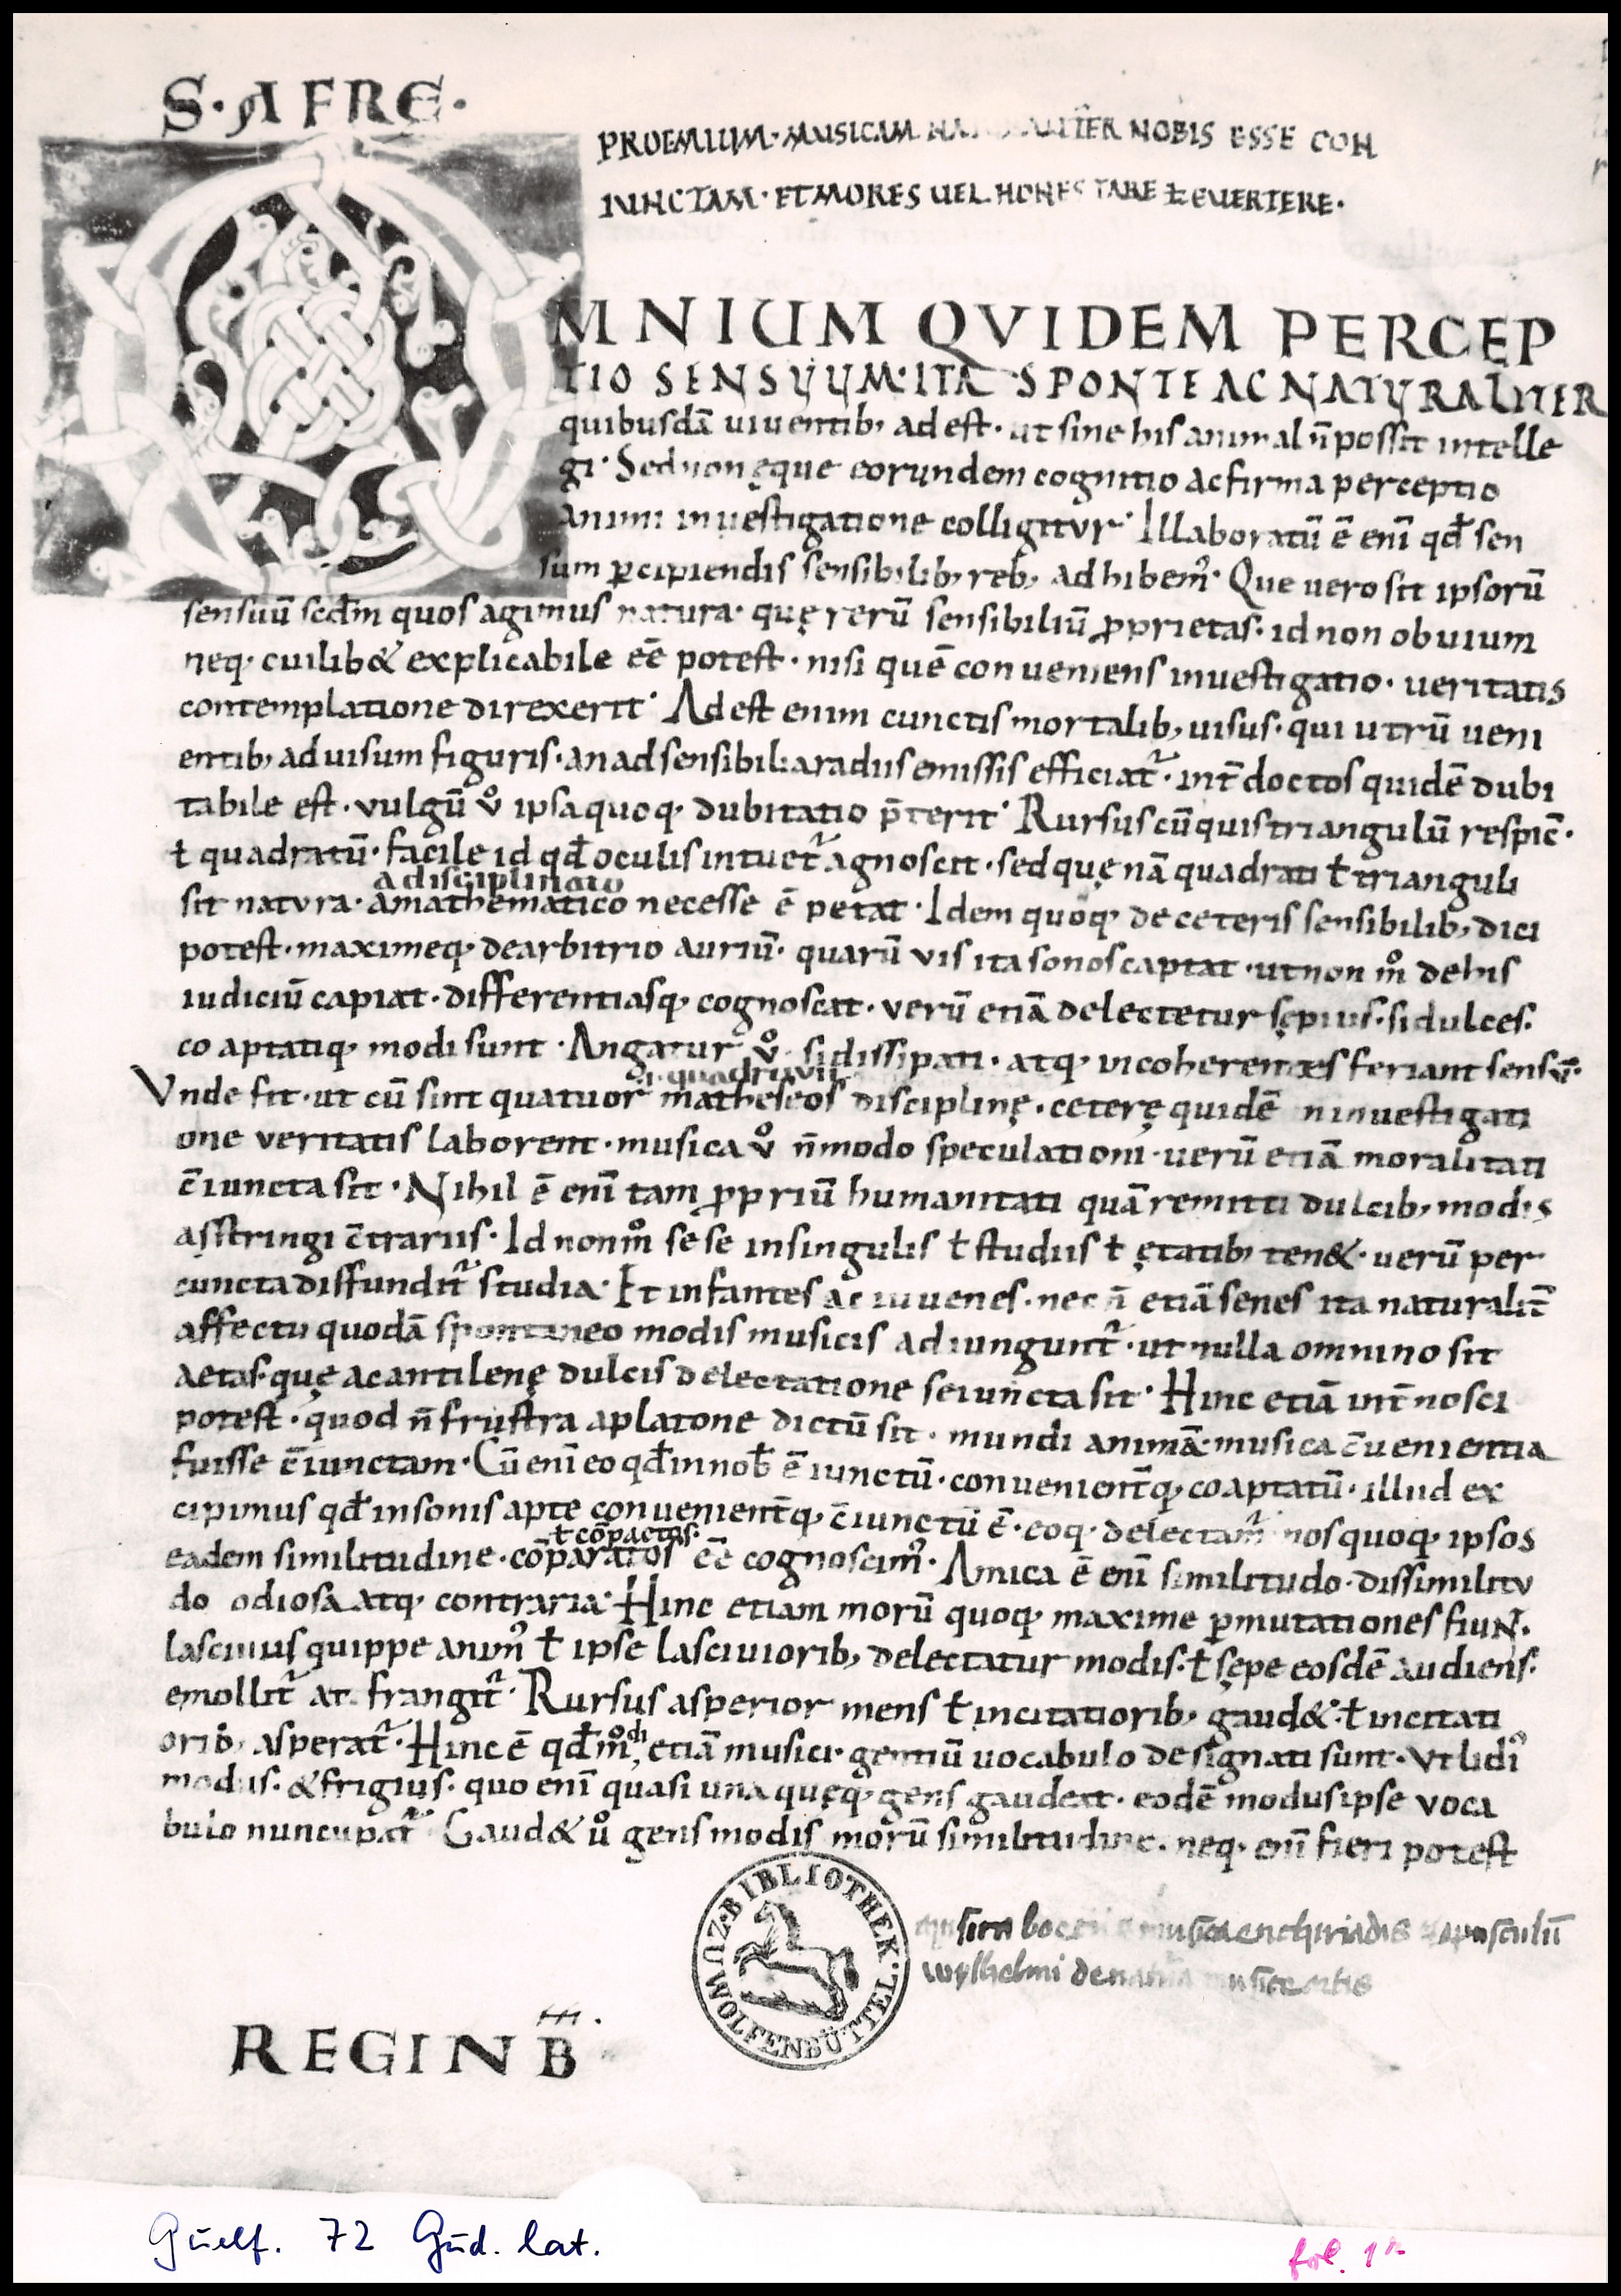 S · AFRE ·
PROEMIUM · MUSICAM NATURALITER NOBIS ESSE CON
IUNCTAM · ET MORES UEL HONESTARE ł EUERTERE ·
OMNIUM QVIDEM PERCEP
TIO SENSUUM · ITA SPONTE AC NATURALITER
quibusdā uiuentib; adest · ut sine his animal n̄ possit intelle
gi · Sed non ęque eorundem cognitio ac firma perceptio
animi inuestigatione colligitur · Illaboratū ē eni̅ qđ sen
sum ꝑcipiendis sensibilib; reb; adhibem᷒ · Que uero sit ipsorū
sensuū secđm quos agimus natura · quę rerū sensibiliū ꝓprietas · id non obuium
neq; cuilib& explicabile eē potest · nisi quē conueniens inuestigatio · ueritatis
contemplatione direxerit · Adest enim cunctis mortalib; uisus · qui utrū ueni
entib; ad uisum figuris · an ad sensibilia radiis emissis efficiat᷑ · int̄ doctos quidē dubi
tabile est · vulgū v̊ ipsa quoq; dubitatio p̄terit · Rursus cū quis triangulū respic̄ ·
ł quadratū · facile id qđ oculis intuet᷑ agnoscit · sed quę nā quadrati ł trianguli
a disciplinato
sit natvra · a mathematico necesse ē petat · Idem quoq; de ceteris sensibilib; dici
potest · maximeq; de arbitrio auriū · quarū vis ita sonos captat · ut non m̊ de his
iudiciū capiat · differentiasq; cognoscat · verū etiā delectetur sępius · si dulces ·
coaptatiq; modi sunt · Angatur v̊ · si dissipati · atq; incoherentes feriant sensū ·
i · quadruvii
Vnde fit · ut cū sint quatuor matheseos disciplinę · ceterę quidē in inuestigati
one veritatis laborent · musica v̊ n̄ modo speculationi · uerū etiā moralitati
c̄iuncta sit · Nihil ē eni̅ tam ꝓpriū humanitati quā remitti dulcib; modis
asstringi c̄trariis · Id non m̊ sese in singulis ł studiis ł ętatib; ten& · uerū per
cuncta diffundit᷑ studia · Et infantes ac iuuenes · nec n̄ etiā senes ita naturalit̄
affectu quodā spontaneo modis musicis adiungunt᷑ · ut nulla omnino sit
aetas · quę a cantilenę dulcis delectatione seiuncta sit · Hinc etiā int̄nosci
potest · quod n̄ frustra a platone dictū sit · mundi animā musica c̄uenientia
fuisse c̄iunctam · Cū eni̅ eo qđ in nob̄ ē iunctū · conuenient̄q; coaptatū · illud ex
cipimus qđ in sonis apte conuenient̄q; c̄iunctū ē · eoq; delectam᷑ nos quoq; ipsos
ł cōpactos ·
eadem similitudine · cōparatos eē cognoscim᷒ · Amica ē eni̅ similitudo · dissimilitv
do odiosa atq; contraria · Hinc etiam morū quoq; maxime ꝑmutationes fiuN ·
lasciuus quippe anim᷒ ł ipse lasciuiorib; delectatur modis · ł sępe eosdē audiens ·
emollit᷑ ac frangit᷑ · Rursus asperior mens ł incitatiorib; gaud& · ł incitati
orib; asperat᷑ · Hinc ē qđ m̊di etiā musici · gentiū uocabulo designati sunt · Vt lidi᷒
modus · & frigius · quo eni̅ quasi una quęq; gens gaudeat · eodē modus ipse voca
bulo nuncupat᷑ Gaud& ů gens modis morū similitudine · neq; eni̅ fieri potest
BIBLIOTHEK · WOLFENBÜTTEL · ZU
musica enchiriadis opusculū
wylhelmi de musice artis
REGIN B̄ ·
Guelf. 72 Gud. lat.
fol. 1r